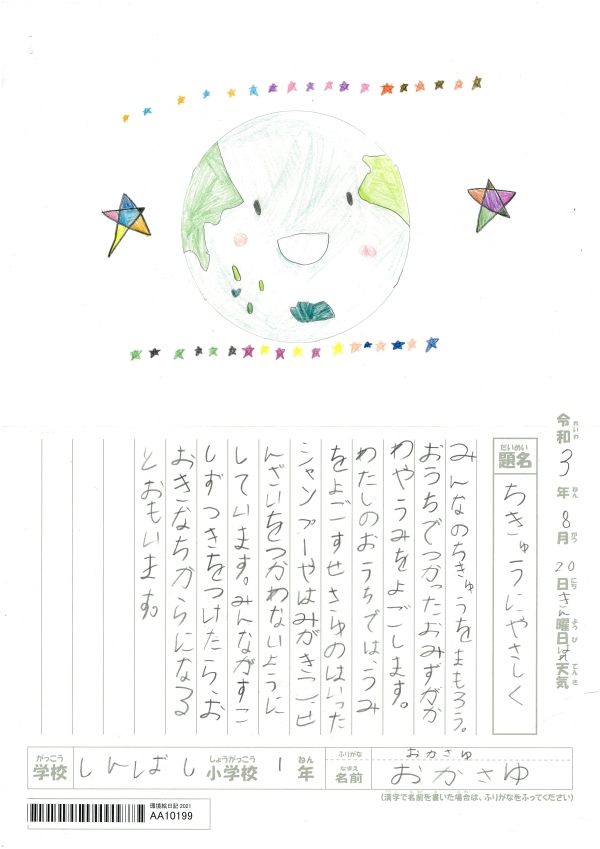 令和3年8月20日きん曜日はれ天気
れいわ ねん がつ にち ようび てんき
だいめい
題名 ちきゅうにやさしく
みんなのちきゅうをまもろう。
おうちでつかったおみずがか
わやうみをよごします。
わたしのおうちでは、うみ
をよごすせきゆのはいった
シャンプーやはみがきこ、せ
んざいをつかわないように
しています。みんながすこ
しずつきをつけたら、お
おきなちからになる
とおもいます。
がっこう しょうがっこう ねん
学校 しんばし小学校 1年
ふりがな おかさゆ
なまえ
名前 おかさゆ
(漢字で名前を書いた場合は、ふりがなをふってください)
環境絵日記 2021
AA10199